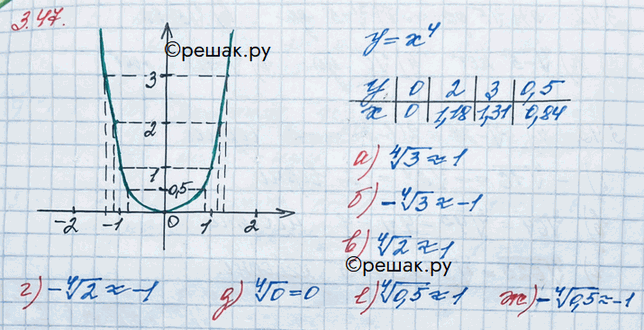 3.47.
©решак.ру
y = x⁴
y | 0 | 2 | 3 | 0,5
x | 0 | 1,18 | 1,31 | 0,84
3
2
1
0,5
-2 -1 0 1 2
а) ⁴√3 ≈ 1
б) -⁴√3 ≈ -1
в) ⁴√2 ≈ 1
©решак.ру
г) -⁴√2 ≈ -1 д) ⁴√0 = 0 е) ⁴√0,5 ≈ 1 ж) -⁴√0,5 ≈ -1